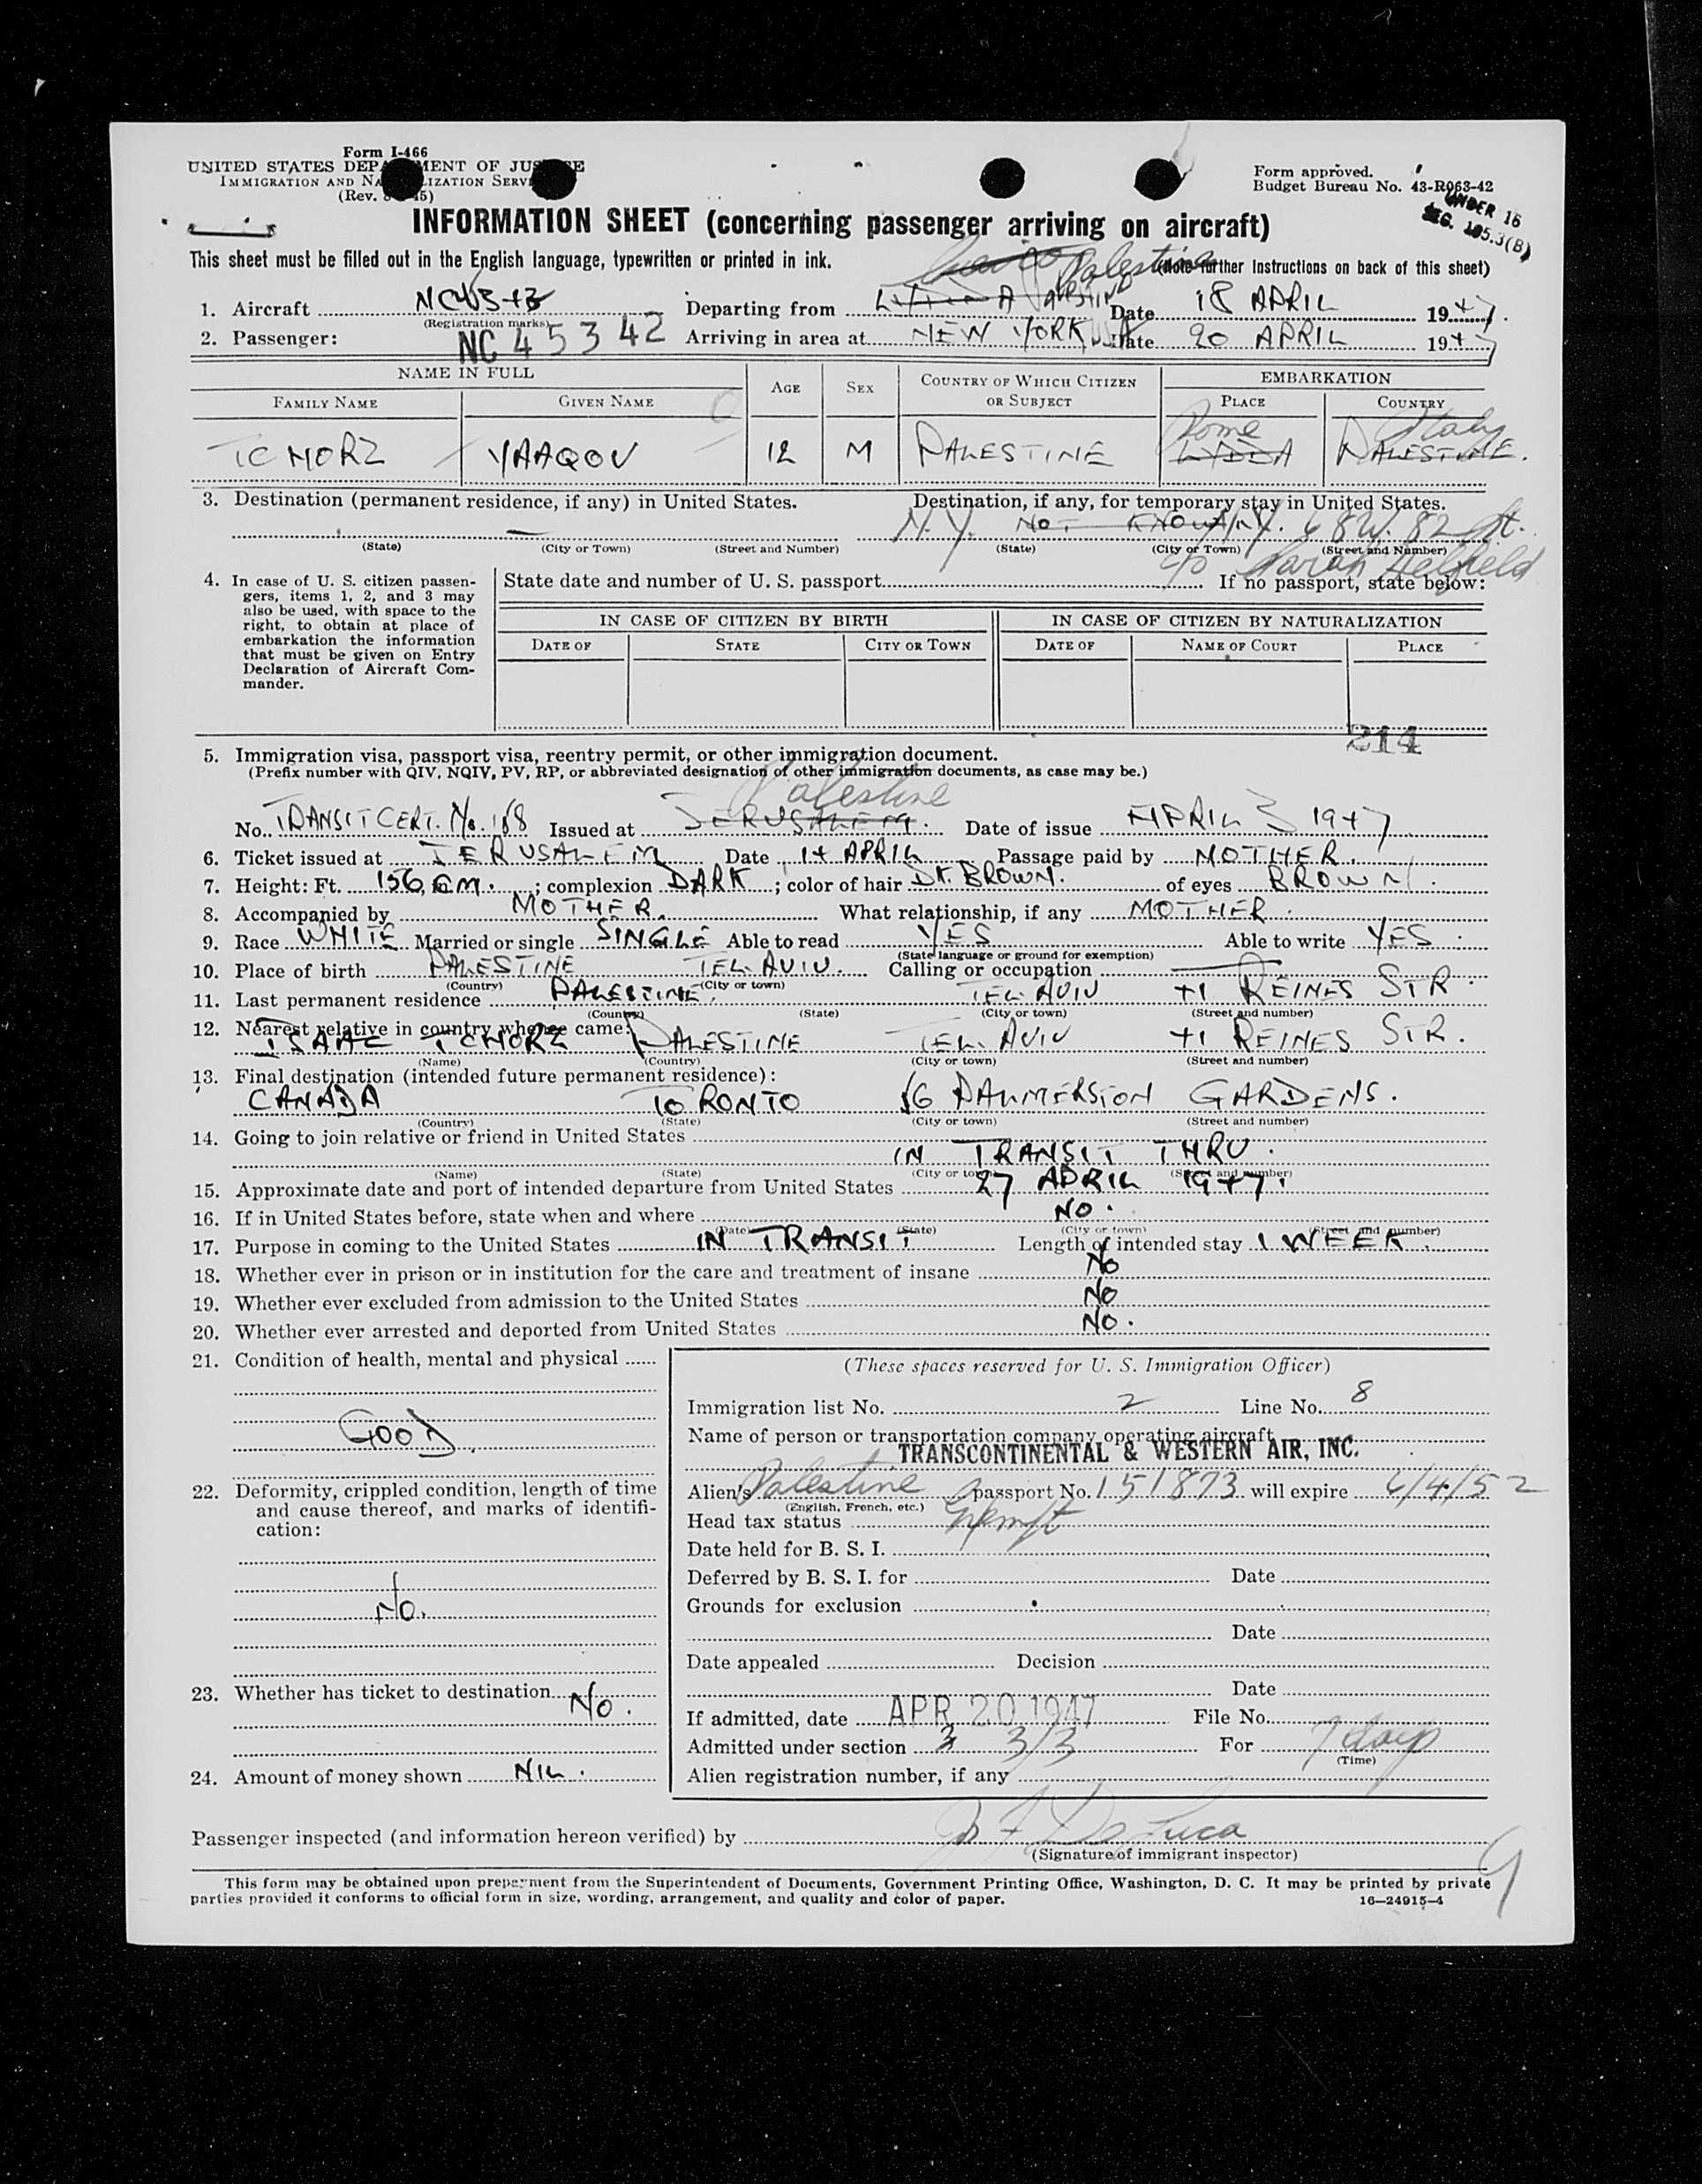 Form I-466
UNITED STATES DEPARTMENT OF JUSTICE
IMMIGRATION AND NATURALIZATION SERVICE
(Rev.
Form approved.
Budget Bureau No. 43-R063-42
UNDER 16
SEG. 105.3(B)
INFORMATION SHEET (concerning passenger arriving on aircraft)
This sheet must be filled out in the English language, typewritten or printed in ink.
Palestine
(Note further instructions on back of this sheet)
1. Aircraft Departing from LYDDA PALESTINE Date 18 APRIL 1947.
(Registration marks)
2. Passenger: NC 45342 Arriving in area at NEW YORK Date 20 APRIL 1947
NAME IN FULL AGE SEX COUNTRY OF WHICH CITIZEN OR SUBJECT EMBARKATION
FAMILY NAME GIVEN NAME PLACE COUNTRY
Rome Italy
TCHORZ YAAQOV 12 M PALESTINE LYDDA PALESTINE.
3. Destination (permanent residence, if any) in United States. Destination, if any, for temporary stay in United States.
— N.Y. NOT KNOWN N.Y. 68 W. 82 St.
(State) (City or Town) (Street and Number) (State) (City or Town) (Street and Number)
c/o Sarah Helfield
4. In case of U. S. citizen passengers, items 1, 2, and 3 may also be used, with space to the right, to obtain at place of embarkation the information that must be given on Entry Declaration of Aircraft Commander.
State date and number of U. S. passport If no passport, state below:
IN CASE OF CITIZEN BY BIRTH IN CASE OF CITIZEN BY NATURALIZATION
DATE OF STATE CITY OR TOWN DATE OF NAME OF COURT PLACE
214
5. Immigration visa, passport visa, reentry permit, or other immigration document.
(Prefix number with QIV, NQIV, PV, RP, or abbreviated designation of other immigration documents, as case may be.)
Palestine
No. TRANSIT CERT. No. 168 Issued at JERUSALEM. Date of issue APRIL 3 1947
6. Ticket issued at JERUSALEM Date 14 APRIL Passage paid by MOTHER.
7. Height: Ft. 156 CM. ; complexion DARK ; color of hair DK. BROWN. of eyes BROWN.
8. Accompanied by MOTHER. What relationship, if any MOTHER.
9. Race WHITE Married or single SINGLE Able to read YES Able to write YES.
(State language or ground for exemption)
10. Place of birth PALESTINE TEL. AVIV. Calling or occupation —
(Country) (City or town)
11. Last permanent residence PALESTINE, TEL AVIV 41 REINES STR.
(Country) (State) (City or town) (Street and number)
12. Nearest relative in country whence came:
ISAAC TCHORZ PALESTINE TEL. AVIV 41 REINES STR.
(Name) (Country) (City or town) (Street and number)
13. Final destination (intended future permanent residence):
CANADA TORONTO 16 PALMERSTON GARDENS.
(Country) (State) (City or town) (Street and number)
14. Going to join relative or friend in United States
IN TRANSIT THRU.
(Name) (State) (City or town) (Street and number)
15. Approximate date and port of intended departure from United States 27 APRIL 1947.
16. If in United States before, state when and where NO.
(Date) (State) (City or town) (Street and number)
17. Purpose in coming to the United States IN TRANSIT Length of intended stay 1 WEEK.
18. Whether ever in prison or in institution for the care and treatment of insane No
19. Whether ever excluded from admission to the United States No
20. Whether ever arrested and deported from United States No.
21. Condition of health, mental and physical
GOOD.
22. Deformity, crippled condition, length of time and cause thereof, and marks of identification:
No.
23. Whether has ticket to destination No.
24. Amount of money shown NIL.
(These spaces reserved for U. S. Immigration Officer)
Immigration list No. 2 Line No. 8
Name of person or transportation company operating aircraft
TRANSCONTINENTAL & WESTERN AIR, INC.
Alien's Palestine passport No. 151873 will expire 4/4/52
(English, French, etc.)
Head tax status Exempt
Date held for B. S. I.
Deferred by B. S. I. for Date
Grounds for exclusion
Date
Date appealed Decision
Date
If admitted, date APR 20 1947 File No.
Admitted under section 3 3/3 For 7 days
(Time)
Alien registration number, if any
Passenger inspected (and information hereon verified) by De Luca
(Signature of immigrant inspector)
9
This form may be obtained upon prepayment from the Superintendent of Documents, Government Printing Office, Washington, D. C. It may be printed by private
parties provided it conforms to official form in size, wording, arrangement, and quality and color of paper.
16—24915-4